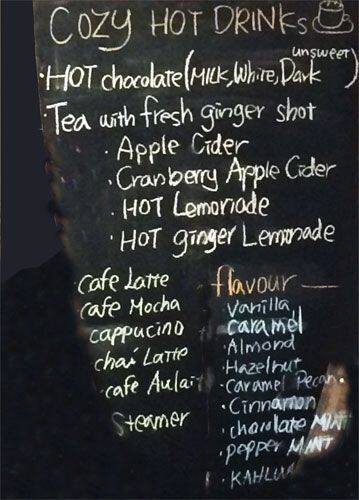 COZY HOT DRINKS
unsweet
·HOT chocolate (MILK, White, Dark)
·Tea with fresh ginger shot
· Apple Cider
· Cranberry Apple Cider
· HOT Lemonade
· HOT ginger Lemonade
cafe Latte
cafe Mocha
cappucino
chai Latte
·cafe Aulait
Steamer
flavour
Vanilla
caramel
·Almond
·Hazelnut
·caramel Pecan
·Cinnamon
·chocolate MINT
·pepper MINT
·KAHLUA